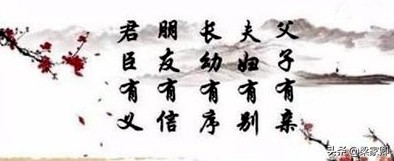 父子有亲
夫妇有别
长幼有序
朋友有信
君臣有义
头条@梁家卿